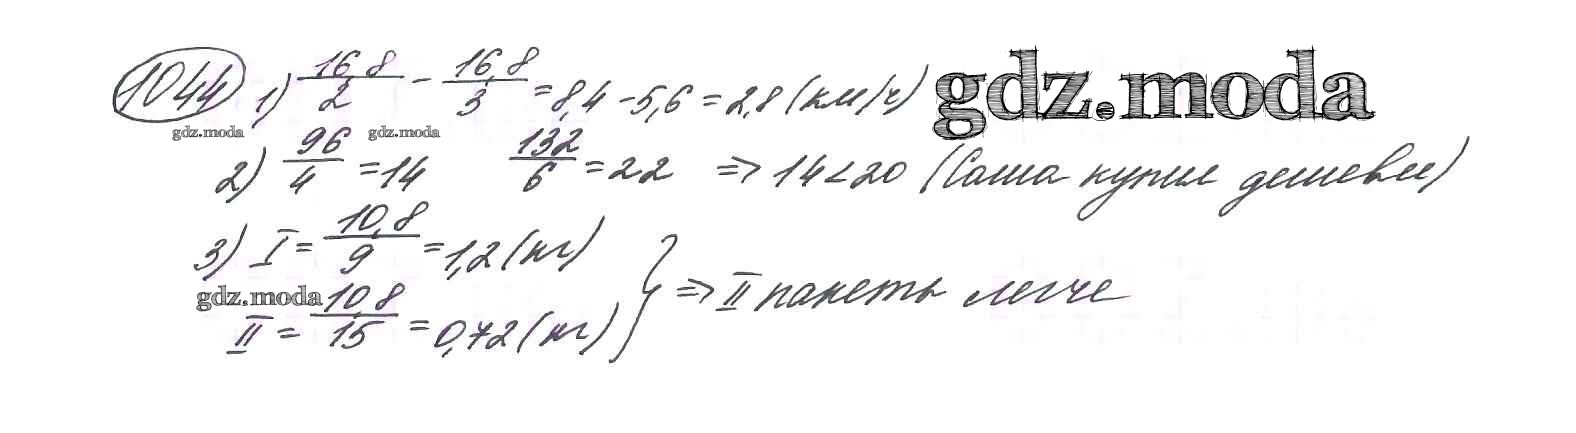 1044 1) 16,8/2 - 16,8/3 = 8,4 - 5,6 = 2,8 (км/ч) gdz.moda
gdz.moda gdz.moda
2) 96/4 = 14 132/6 = 22 => 14 < 20 (Саша купил дешевле)
3) I = 10,8/9 = 1,2 (кг)
gdz.moda } => II пакеты легче
II = 10,8/15 = 0,72 (кг)